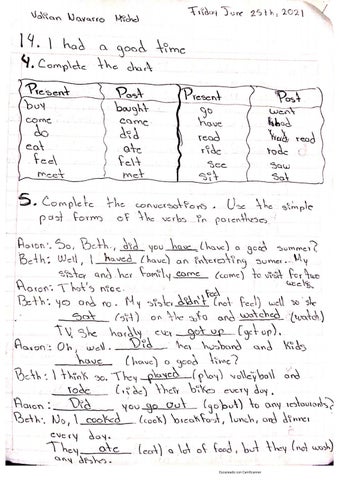 Valian Navarro Michel Friday June 25th, 2021
14. I had a good time
4. Complete the chart
Present Past Present Past
buy bought go went
come came have had
do did read read
eat ate ride rode
feel felt see saw
meet met sit sat
5. Complete the conversations. Use the simple
past forms of the verbs in parentheses
Aaron: So, Beth, did you have (have) a good summer?
Beth: Well, I haved (have) an interesting sumer. My
sister and her family came (come) to visit for two
weeks.
Aaron: That's nice.
Beth: yes and no. My sister didn't feel (not feel) well so she
sat (sit) on the sofa and watched (watch)
TV. She hardly ever got up (get up).
Aaron: Oh, well. Did her husband and kids
have (have) a good time?
Beth: I think so. They played (play) volleyball and
rode (ride) their bikes every day.
Aaron: Did you go out (go out) to any restaurants?
Beth: No, I cooked (cook) breakfast, lunch, and dinner
every day.
They ate (eat) a lot of food, but they (not wash)
any dishes.
Escaneado con CamScanner